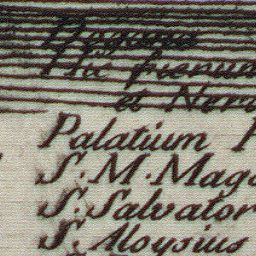 Dogana
Hic
et
Palatium
S. M. Mag
S. Salvator
S. Aloysius